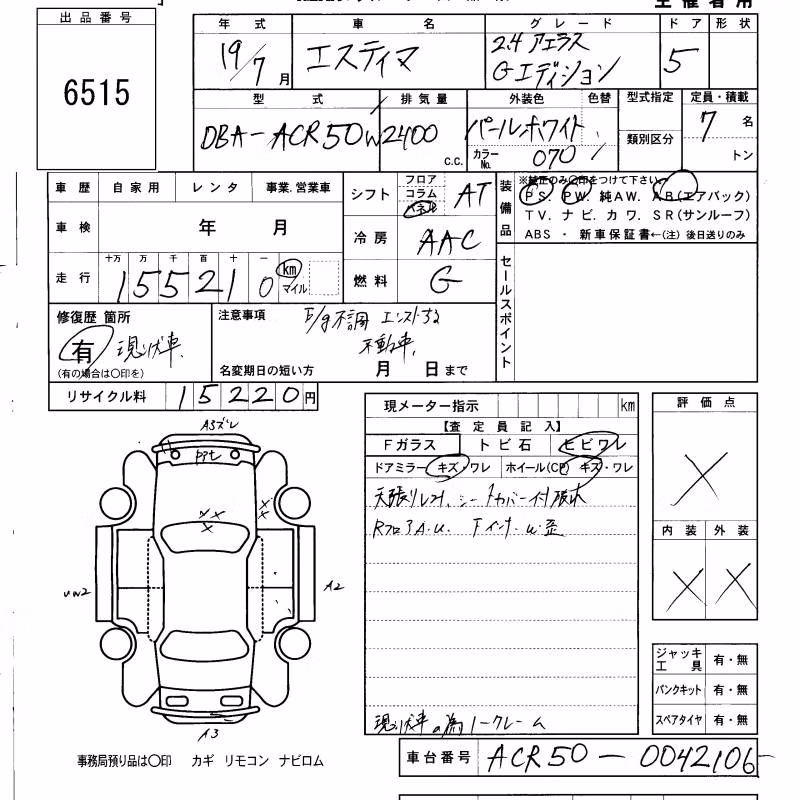 出品番号
6515
年式 車名 グレード ドア 形状
19/7月 エスティマ 2.4 アエラス Gエディション 5
型式 排気量 外装色 色替 型式指定 定員・積載
DBA-ACR50W 2400 c.c. パールホワイト 類別区分 7名
カラーNo. 070 トン
車歴 自家用 レンタ 事業.営業車
車検 年 月
走行 十万 万 千 百 十 一 km マイル
155210
シフト フロア コラム パネル AT
冷房 AAC
燃料 G
装備品
※純正のみ○印をつけて下さい
PS. PW. 純AW. AB(エアバック)
TV. ナビ. カワ. SR(サンルーフ)
ABS ・ 新車保証書←(注) 後日送りのみ
セールスポイント
修復歴 箇所
有 現状車.
(有の場合は○印を)
注意事項 E/g不調 エンストする
不動車.
名変期日の短い方 月 日まで
リサイクル料 15220円
現メーター指示 km
【査定員記入】
Fガラス トビ石 ヒビワレ
ドアミラー キズ・ワレ ホイール(CP) キズ・ワレ
天張りしみ、シートカバー付
RフロアA.U.
現状車の為ノークレーム
評価点
×
内装 外装
× ×
ジャッキ工具 有・無
パンクキット 有・無
スペアタイヤ 有・無
A3ズレ
PPt
UW2
A2
A3
事務局預り品は○印 カギ リモコン ナビロム
車台番号 ACR50-0042106